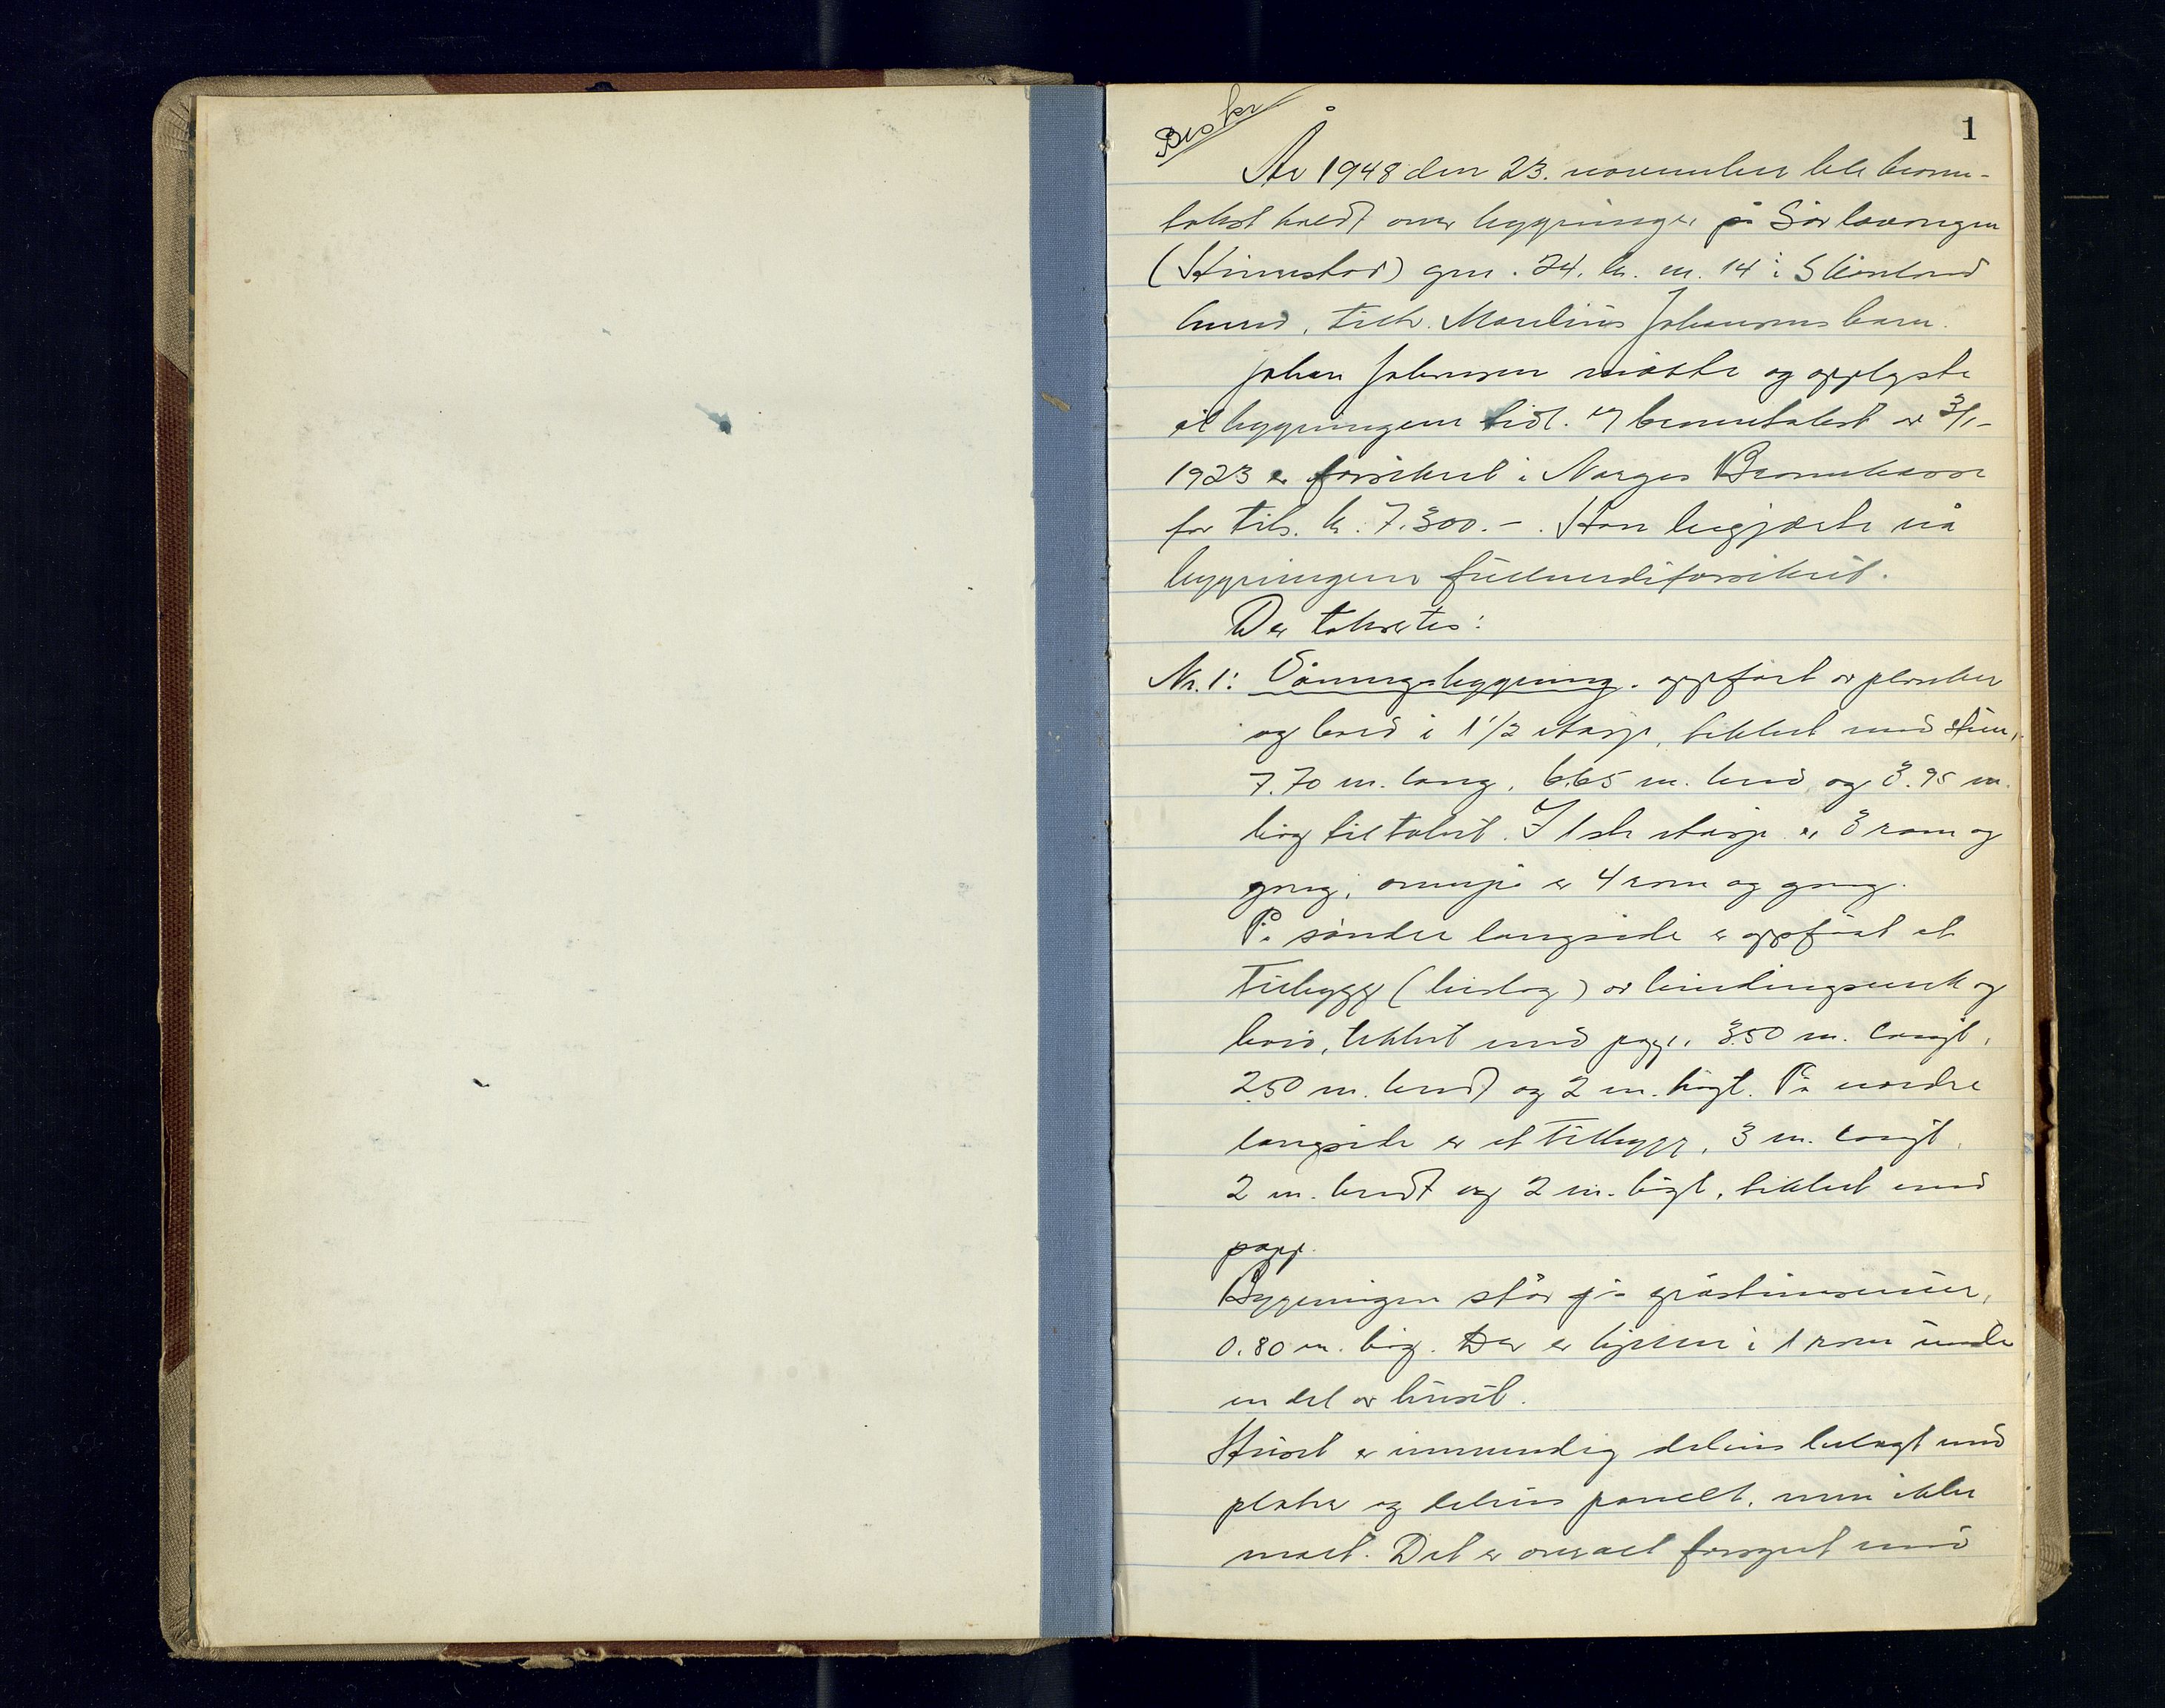 1
År 1948 den 23. november ble brann-
takst holdt over bygninger på Sørlavangen
(Himmelstad) gnr. 24, br. nr. 14 i Skånland
herred, tilh. Marelius Johansens barn.
Johan Johansen møtte og opplyste
at bygningene tidl. ved branntakst av 3/1-
1923 er forsikret i Norges Brannkasse
for tils. kr. 7.300.-. Han begjærte nå
bygningene fullverdiforsikret.
Der takseres:
Nr. 1: Våningsbygning, oppført av planker
og bord i 1 1/2 etasje, tekket med stein,
7.70 m. lang, 6.65 m. bred og 3.95 m.
høg til taket. I 1ste etasje er 3 rom og
gang, ovenpå er 4 rom og gang.
På søndre langside er oppført et
tilbygg (bislag) av bindingsverk og
bord, tekket med papp, 3.50 m. langt,
2.50 m. bredt og 2 m. høgt. På nordre
langside er et tilbygg, 3 m. langt,
2 m. bredt og 2 m. høgt, tekket med
papp.
Bygningen står på gråsteinsmur,
0.80 m. høg. Der er kjeller i 1 rom under
en del av huset.
Huset er innvendig delvis belagt med
plater og delvis panelt, men ikke
malt. Det er overalt forsynt med